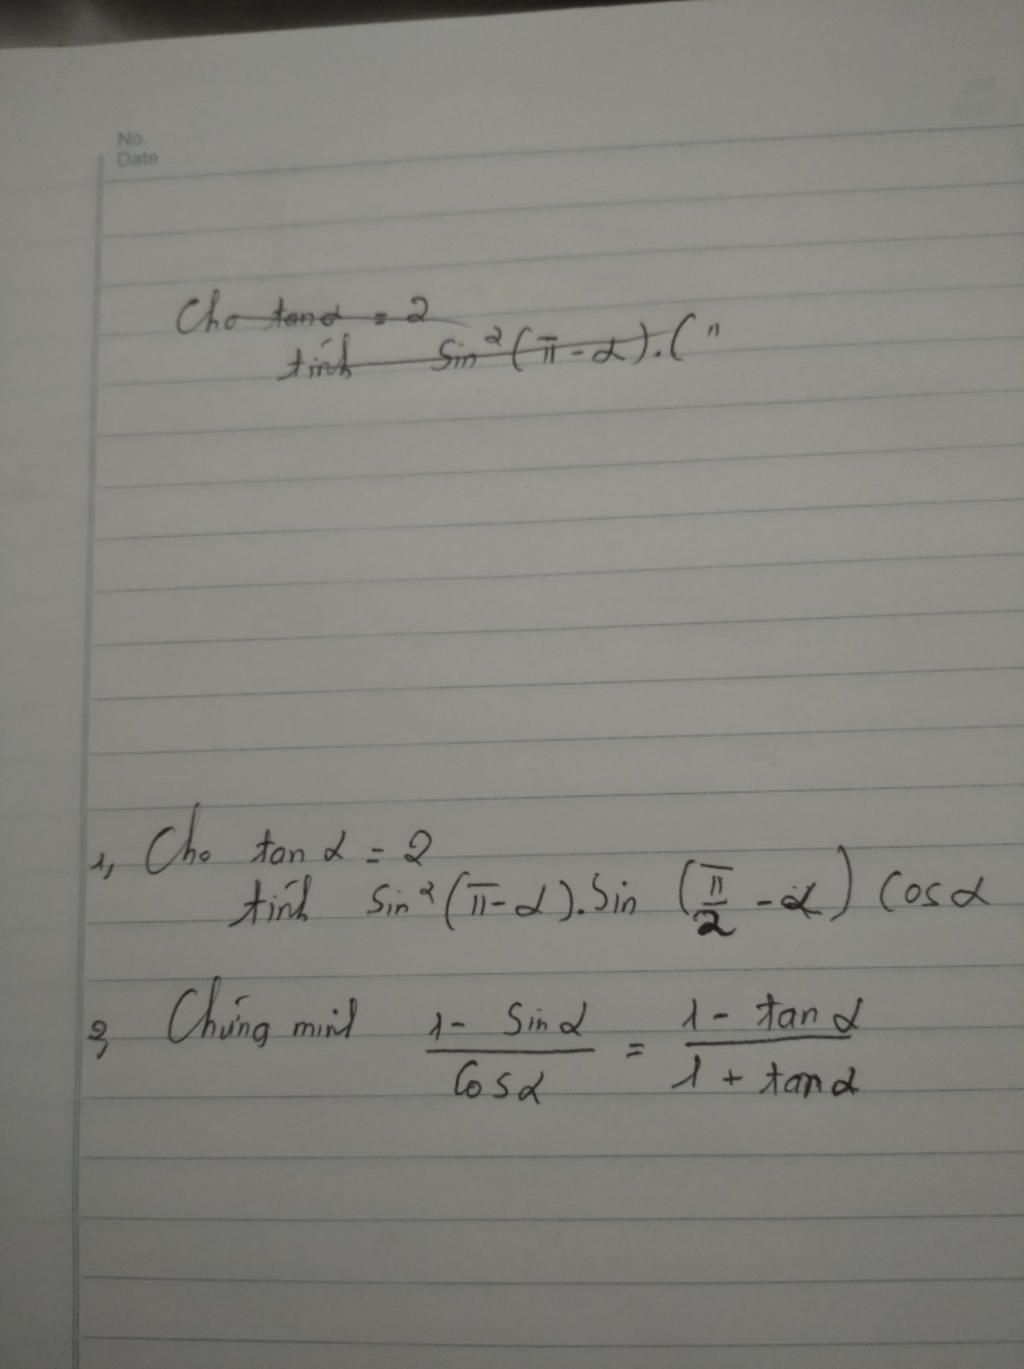 No.
Date
Cho tanα = 2
tính sin²(π-α).(
1, Cho tan α = 2
tính Sin²(π-α).Sin (π/2 - α) Cosα
2, Chứng minh (1 - Sinα)/(Cosα) = (1 - tanα)/(1 + tanα)